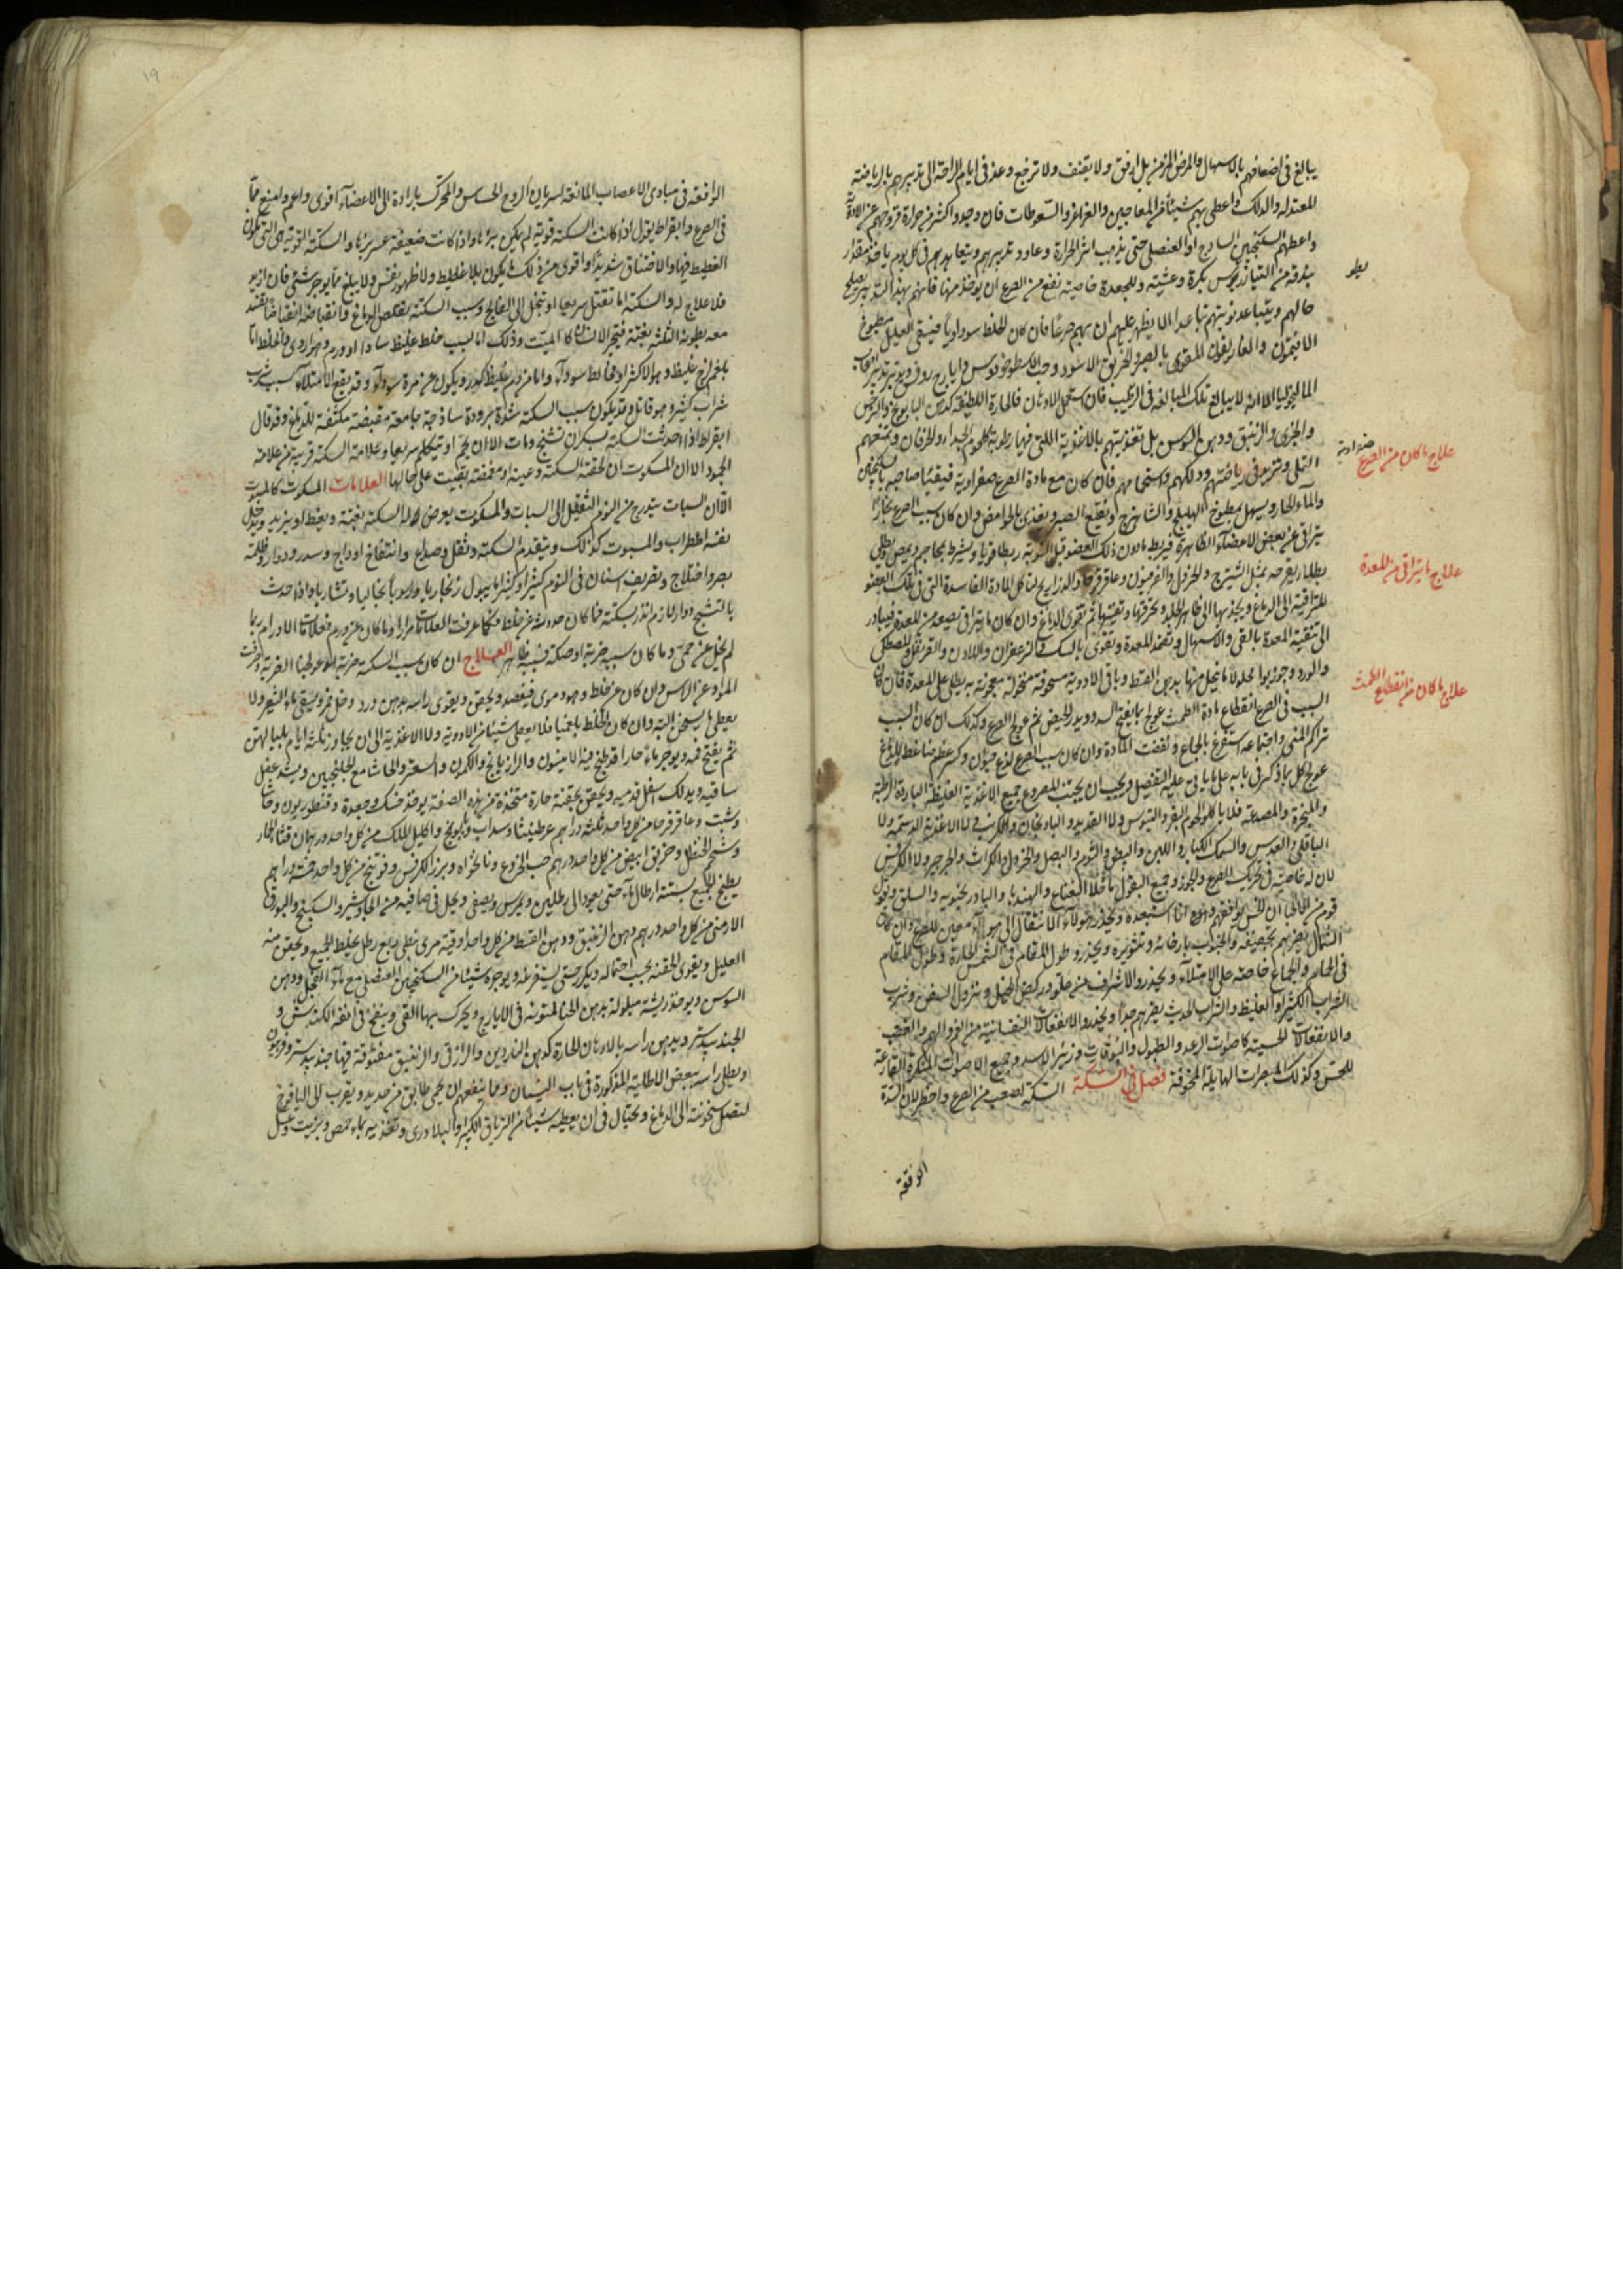 يبالغ في اضعافهم بالاسهال والمرض المزمن بل ارفق ولا يعنف ولا ترفع وعد في ايام الراحة الى تدبيرهم بالرياضة
المعتدلة والدلك واعطى بهم شيئا من المعاجين والغراغر والسعوطات فان وجدوا اكثر من حرارة فروحهم عن الادوية
واعطهم السكنجبين الساذج او العنصلي حتى يذهب اثر الحرارة وعاود تدبيرهم وتعاهدهم في كل يوم ياخذ مقدار
بندقة من التياذريطوس بكرة وعشية وللجعدة خاصية نفع من الصرع ان يؤخذ منها فانهم بهذا التدبير يصلح
حالهم ويتباعد نوبتهم تباعدا لا يظهر عليهم ان بهم صرعا فان كان الخلط سوداويا فينقى العليل بمطبوخ
الافتيمون والغاريقون المقوى بالصبر والخربق الاسود وحب الاسطوخودوس وايارج روفس ويدبر تدبير اصحاب
المالنخوليا الا انه لا يبالغ تلك المبالغة في الترطيب فان استعمل الادهان فالحارة اللطيفة كدهن البابونج والنرجس
والخيري والزنبق ودهن السوسن بل تغذيتهم بالاغذية اللتي فيها رطوبة كلحوم الجداء والخرفان وتمنعهم
التملي وتزيد في رياضتهم ودلكهم واستحمامهم فان كان مع مادة الصرع صفراوية فيقيئها صاحبه بالسكنجبين
والماء الحار ويسهل بمطبوخ الهليلج والشاهترج او بنقيع الصبر ويغذى بالحوامض وان كان سبب الصرع بخارا
يتراقى عن بعض الاعضاء الظاهرة فيربط مادون ذلك العضو قبل النوبة ربطا قويا ويشرط بمحاجم ويمص ويطلى
بطلا يقرحه بمثل الشيترج والخردل والفرفيون وعاقرقرحا والذراريح لتاكل المادة الفاسدة التي في تلك العضو
المتراقية الى الدماغ ويجذبها الى ظاهر الجلد ويحرقها وتفنيها ثم تقوى الدماغ وان كان ما يتراقى تصعد من المعدة فيبادر
الى تنقية المعدة بالقي والاسهال وتضمد المعدة وتقوى بالسك والزعفران واللادن والقرنفل والمصطكى
والورد وجوزبوا محلولا ما ينحل منها بدهن القسط وباقي الادوية مسحوقة منخولة معجونة به يطلى على المعدة فان كان
السبب في الصرع انقطاع مادة الطمث عولج بما يفتح السدد ويدر الحيض ثم عولج الصرع وكذلك ان كان السبب
تراكم المني واجتماعه استفرغ بالجماع ونفضت المادة وان كان سبب الصرع لذع حيوان وكسر عظم ضاغط للدماغ
عولج كل بما ذكر في بابه على ما ياتي عليه التفصيل ويجب ان يجتنب المصروع جميع الاغذية الغليظة الباردة الرطبة
والمبخرة والمصدعة فلا ياكلوا لحوم البقر والتيوس ولا القديد والباذنجان والكرنب ولا الاغذية الدسمة ولا
الباقلى والعدس والسمك الكبار واللبن والبيض والثوم والبصل والخردل والكراث والجرجير ولا الكرفس
لان له خاصية في تحريك الصرع والجوز وجميع البقول ما خلا النعناع والهندبا والبادرنجبويه والسلق ويقول
قوم من الاطباء ان الخس يوافقهم وانا استبعده ويحذر هولاء الانتقال الى هواء معين للصرع وان كان
الشمال يضرهم بتجفيفه والجنوب بارخائه وتثويره ويحذر وطول المقام في الشمس الحارة وطول المقام
في الحمام والجماع خاصة على الامتلاء ويحذروا الاشراف من علو وركض الخيل ونزول السفن وشرب
الشراب الكثير والغليظ والشراب الحديث يضرهم جدا ويحذروا الانفعالات النفسانية من الغم والهم والغضب
والانفعالات الحسية كاصوات الرعد والطبول والبوقات وزئير الاسد وجميع الاصوات المنكرة القارعة
للحس وكذلك المبصرات الهايلة المخوفة فصل في السكتة السكتة اصعب من الصرع واخطر لان السدة
الواقعة
علاج ما كان من الصرع صفراوية
علاج ما يتراقى من المعدة
علاج ما كان من انقطاع الطمث
١٩
الواقعة في مبادى الاعصاب المانعة لسريان الروح الحساس والمحرك بارادة الى الاعضاء اقوى واعم وامنع مما
في الصرع وابقراط يقول اذا كانت السكتة قوية لم يكن برؤها واذا كانت ضعيفة عسر برؤها والسكتة القوية هي التي تكون
الغطيط فيها والاختناق شديدا واقوى من ذلك ما يكون بلا غطيط ولا ظهور نفس ولا يبلغ ما يوجر شي فان ازبد
فلا علاج له والسكتة اما تقتل سريعا او تنحل الى الفالج وسبب السكتة تقلص الدماغ وانقباضه انقباضا ينسد
معه بطونه الثلثة بغتة فيخر الانسان كالميت وذلك اما لسبب خلط غليظ ساد او ورم وضواردى والخلط اما
بلغم لزج غليظ وهو الاكثر او خالط سوداء واما من دم غليظ كدر ويكون عن مرة سوداء وقد يقع الامتلاء بسبب شرب
شراب كثير وهو قاتل وقد يكون سبب السكتة شدة برودة ساذجة جامعة مقبضة مكثفة للدماغ وقد قال
ابقراط اذا احدثت السكتة لسكران تشنج ومات الا ان يحم او يتكلم سريعا وعلامة السكتة قريبة من علامة
الجمود الا ان المسكوت ان لحقته السكتة وعينه او مغمضة بقيت على حالها العلامات المسكوت كالمسبوت
الا ان السبات يتدرج من النوم الثقيل الى السبات والمسكوت يعرض له السكتة بغتة ويغط او يزبد ويدخل
نفسه اضطراب والمسبوت كذلك ويتقدم السكتة وثقل وصداع وانتفاخ اوداج وسدر ودوار وظلمة
بصر واختلاج وتصريف اسنان في النوم كثيرا وكثيرا ما يبول زنجاريا وراسوبا نخاليا ونشاريا واذا حدث
بالتشنج دوار لازم انذر بسكتة فما كان حدوثه عن خلط فكما عرفت العلامات مرارا وما كان عن ورم فعلامات الاورام وربما
لم يخل عن حمى وما كان سببه ضربة او صكة فسببه ظاهر العلاج ان كان سبب السكتة ضربة او عولجنا الضربة واصرفت
المواد عن الراس وان كان عن خلط وهو دموي فيفصد ويحقن ويقوى راسه بدهن ورد وخل خمر ويسقى ماء الشعير ولا
يعطى ما يسخن البتة وان كان الخلط بلغميا فلا يعطى شيئا من الادوية ولا الاغذية الى ان يجاوز ثلثة ايام بلياليهن
ثم يفتح فمه ويوجر ماء حارا قد طبخ فيه الانيسون والرازيانج والكمون والسعتر والحاشا مع الجلنجبين ويشد عضل
ساقيه ويدلك اسفل قدميه ويحقن بحقنة حارة متخذة من هذه الصفة يؤخذ حسك وجعدة وقنطوريون وحاشا
وشبت وعاقرقرحا من كل واحد ثلثة دراهم عرطنيثا وسداب وبابونج واكليل الملك من كل واحد درهمان قثاء الحمار
وشحم الحنظل وخربق ابيض من كل واحد درهم حب الخروع ونانخواه وبزر الكرفس وفوتنج من كل واحد خمسة دراهم
يطبخ الجميع بستة ارطال ماء حتى يعود الى رطلين ويمرس ويصفى ويحل في صافيه من الجاوشير والسكبينج والبورق
الارمني من كل واحد درهم دهن الزنبق ودهن القسط من كل واحد اوقية مري نبطي ربع رطل يخلط الجميع ويحقن منه
العليل ويقوى الحقنة بحسب احتماله ويكرر حتى يستفرغه ويوجره شيئا من السكنجبين العنصلي مع ماء الفجل ودهن
السوسن ويؤخذ ريشة مبلولة بدهن الحنا المتوتة في الايارج ويحرك بها القي وينفخ في انفه الكندس و
الجندبيدستر ويدهن راسه بالادهان الحارة كدهن الناردين والرازقي والزنبق مفتوقة فيها جندبيدستر وفربيون
ويطلى راسه ببعض الاطلية المذكورة في باب النسيان ومما ينفعهم ان يحمى طابق من حديد ويقرب الى اليافوخ
لتصل سخونته الى الدماغ ويحتال في ان يعطيه شيئا من الترياق الكبير والبلادري وتغذيه بماء حمص وبزيت وعسل